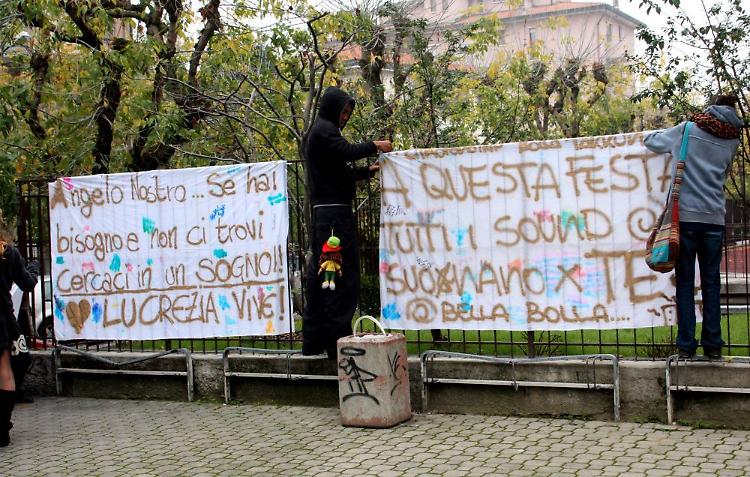 Angelo Nostro... Se hai
bisogno e non ci trovi
cercaci in un SOGNO!!
LUCREZIA VIVE!
A QUESTA FESTA
TUTTI i SOUND @
SUONANO X TE
@ BELLA BOLLA....